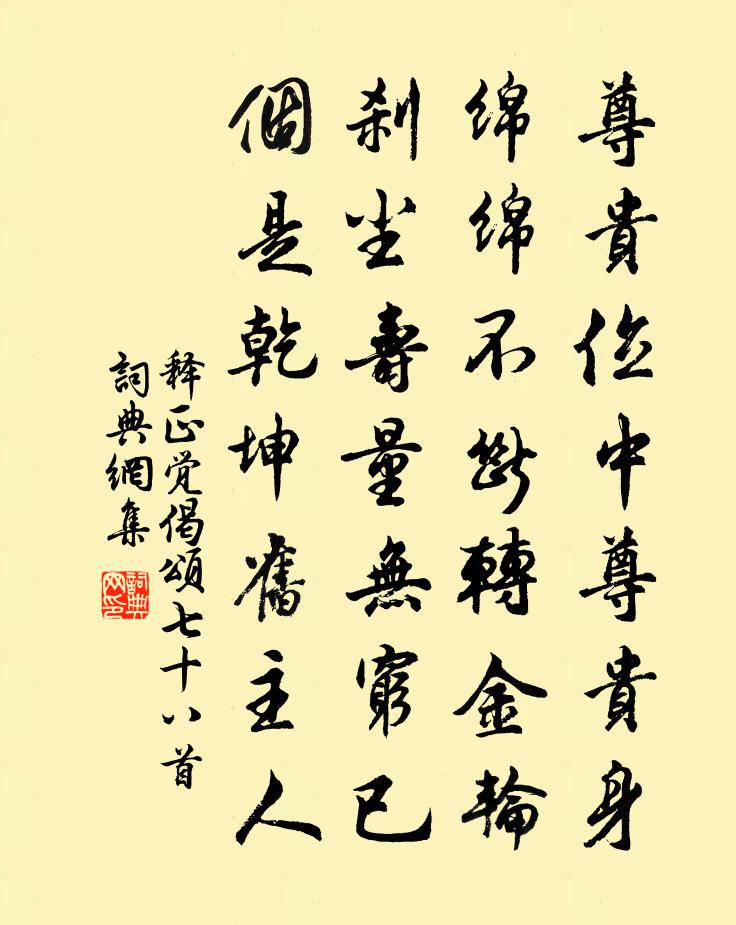 尊貴位中尊貴身
綿綿不斷轉金輪
刹塵壽量無窮已
個是乾坤舊主人
释正觉偈頌七十八首
詞典網集
詞典网印